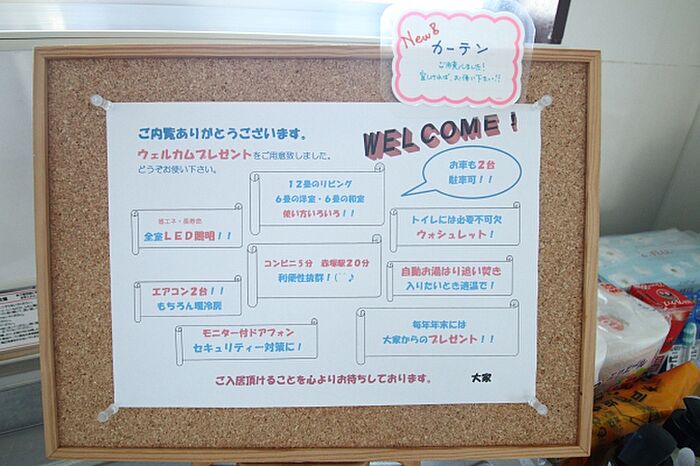 New!
カーテン
ご用意しました!
宜しければ、お使い下さい!!
WELCOME!
ご内覧ありがとうございます。
ウェルカムプレゼントをご用意致しました。
どうぞお使い下さい。
お車も2台
駐車可!!
12畳のリビング
6畳の洋室・6畳の和室
使い方いろいろ!!
省エネ・長寿命
全室LED照明!!
トイレには必要不可欠
ウォシュレット!
コンビニ5分 赤塚駅20分
利便性抜群!(^^♪
自動お湯はり追い焚き
入りたいとき適温で!
エアコン2台!!
もちろん暖冷房
モニター付ドアフォン
セキュリティー対策に!
毎年年末には
大家からのプレゼント!!
ご入居頂けることを心よりお待ちしております。 大家